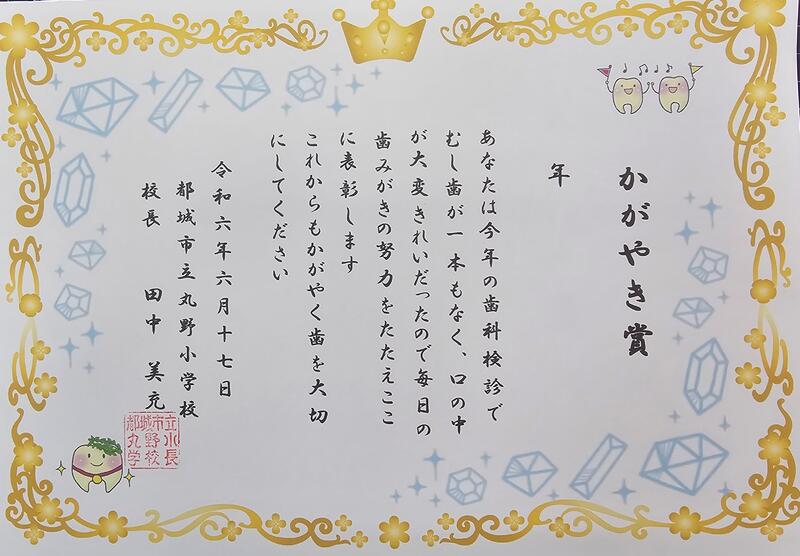 かがやき賞
年
あなたは今年の歯科検診で
むし歯が一本もなく、口の中
が大変きれいだったので毎日の
歯みがきの努力をたたえここ
に表彰します
これからもかがやく歯を大切
にしてください
令和六年六月十七日
都城市立丸野小学校
校長 田中 美充
立小長
市野校
都城丸学